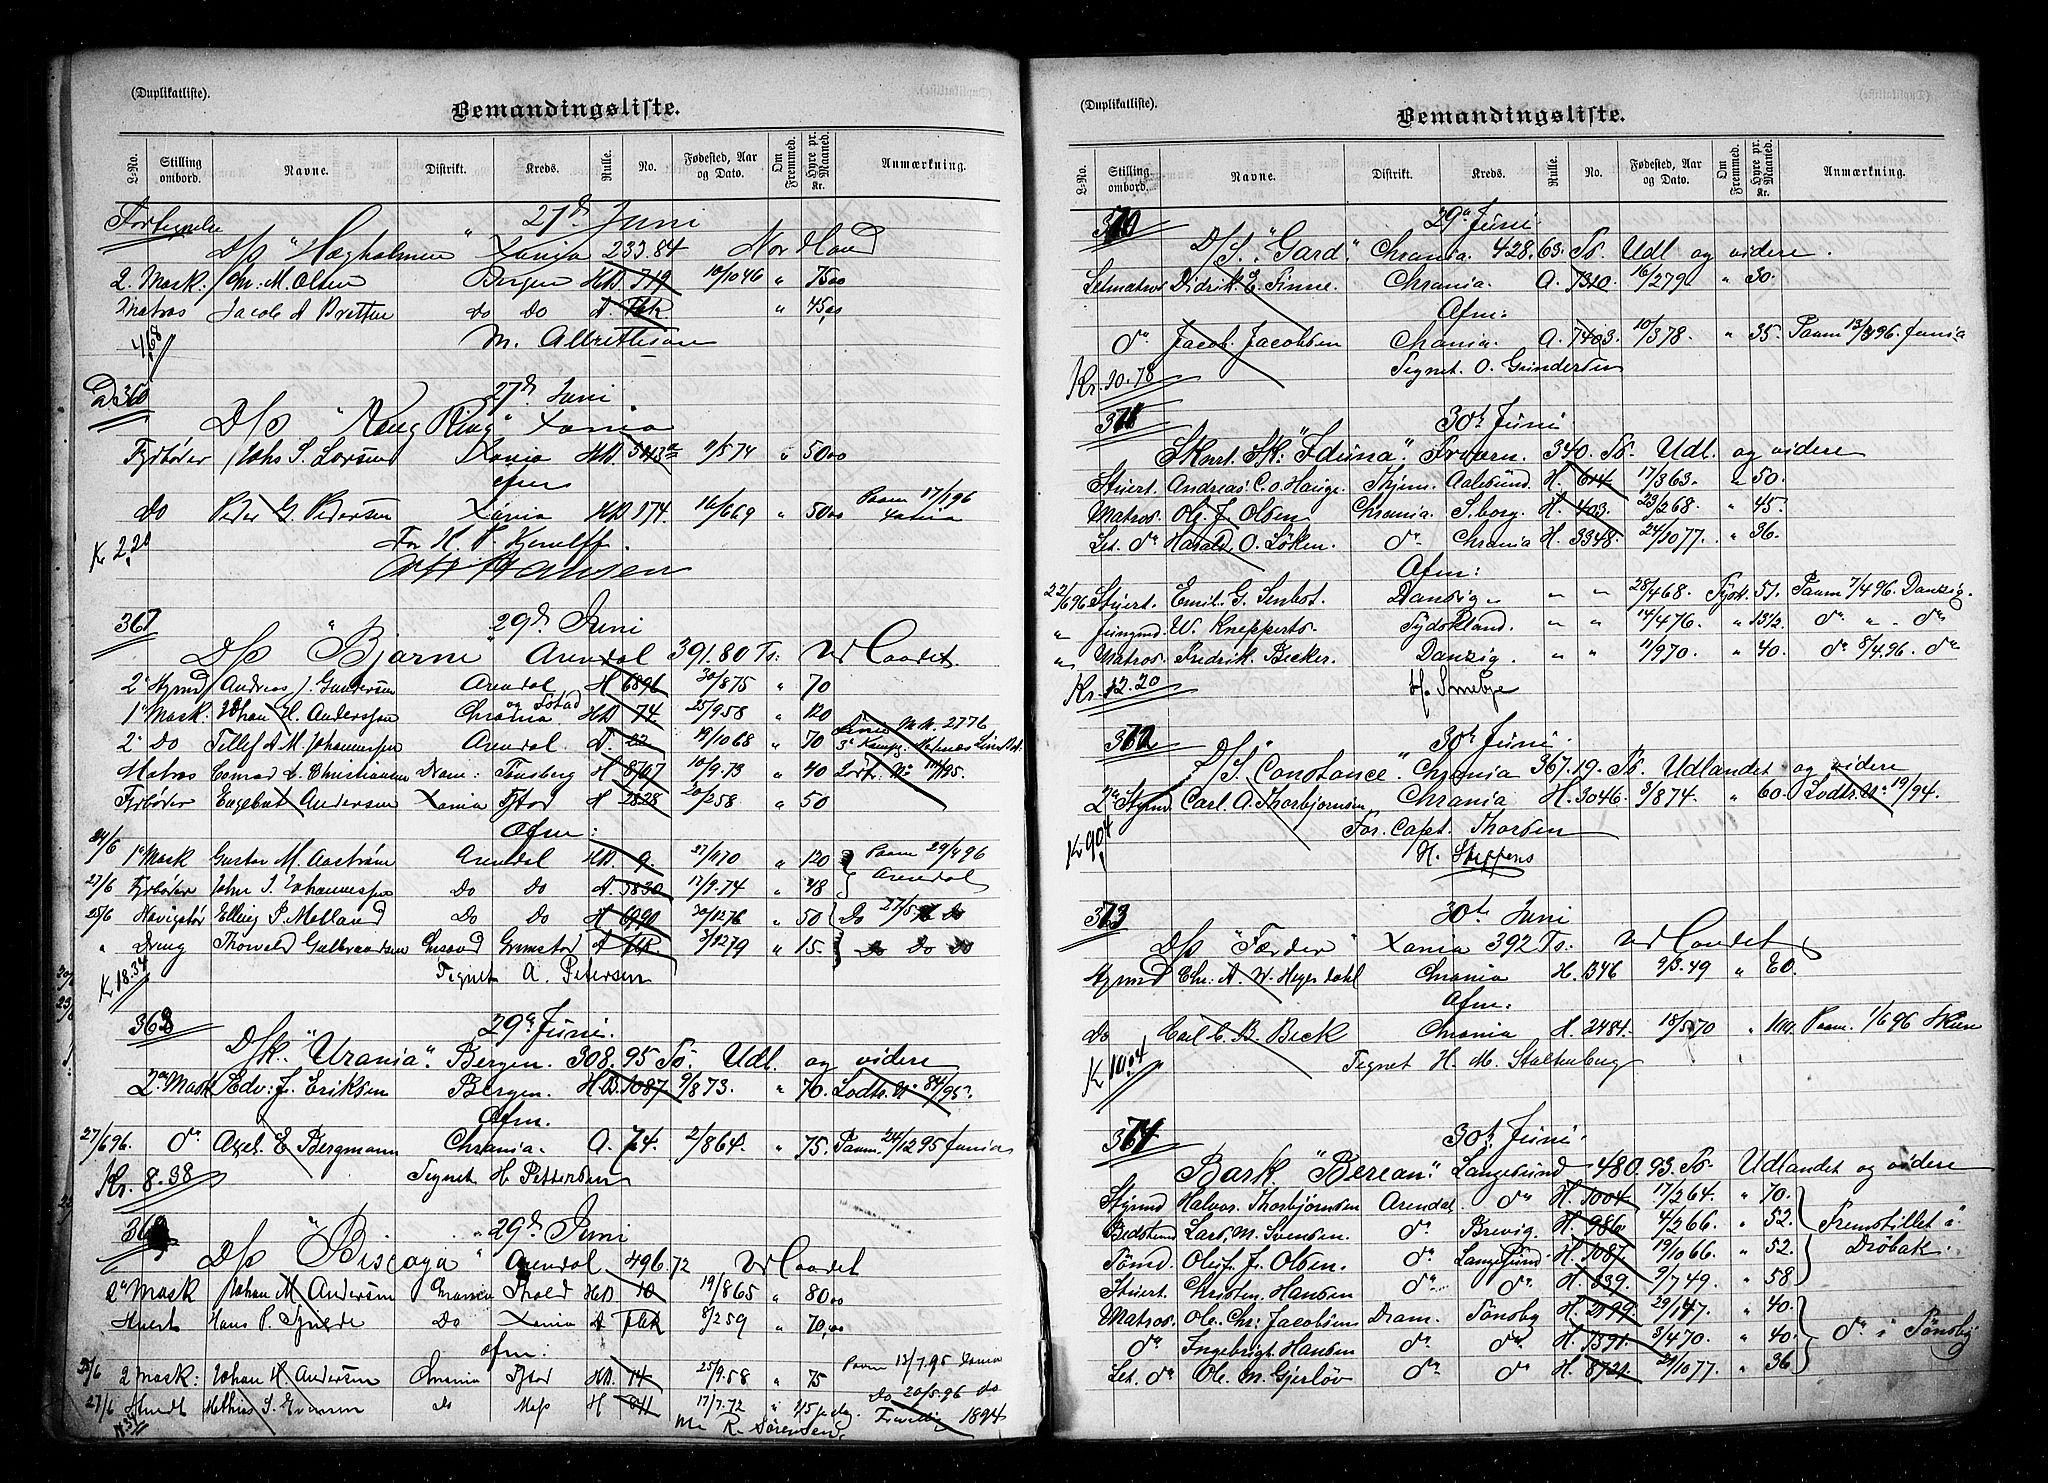 (Duplikatliste).
Bemandingsliste.
L-No. Stilling ombord. Navne. Distrikt. Kreds. Rulle. No. Fødested, Aar og Dato. Om Fremmed. Hyre pr. Maaned. Kr. Anmærkning.
27d Juni
D/s "Hægholmen" Xania 233.84
2. Mask. M. Olsen Bergen HD 719 10/10 46 " 75 00
Matros Jacob A Bratten do do A. " 45,00
M. Albrethson
4,68
360
27d Juni
D/s "Kong Ring" Xania
Fyrbøder Johs S. Larsen Xania HD. 11/5 74 " 50 00
afm
Do Peder G. Pedersen Xania HD 174. 16/6 69 " 50 00 Paam 17/1 96 Xania
Kr 2,20
For H. P. Kjerulff.
Hansen
367
29d Juni
D/s "Bjarne" Arendal 391.80 Ts: Udlandet.
2d Styrmd Andreas J. Gundersen Arendal H 6896 30/8 75 " 70
1ste Mask: Johan H. Anderssen Chrania HD. 74. 25/9 58 " 120
2d Do Tellef A M. Johannessen Arendal. A. 22 19/10 68 " 70
Matros Conrad C. Christiansen Dram: Tønsberg H 8707 10/9. 73 " 40
Fyrbøder Engebret Andersen Xania Fstad H 2828 20/2 58 " 50
Afm:
24/6 1ste Mask Gustav M. Aastrøm Arendal HD. 9. 27/1 70 " 120 Paam 29/4 96
27/6 Fyrbøder John S. Johannessen Do Do A. 5830 12/9. 74 " 48 Arendal
25/6 Navigatør Elling P. Møland Do Do H 6990 30/12 76 " 50 Do 27/5 96 Do
" Dreng Thorvald Gulbrandsen Grimstad A 3/12 79 " 15. Do Do Do
Kr 18.34
Tegnet A. Petersen
368
29d Juni.
D/sk. "Urania". Bergen. 308.95 To. Udl. og videre
2den Mask Edv: J. Eriksen Bergen. HD. 1087 9/8 73. " 70. Lodtr. No 84/95.
Afm.
27/6 96. do Axel. E Bergmann Chrania. A. 74. 2/8 64. " 75. Paam. 24/12 95
Kr. 8.38
Tegnet H. Pettersen
29d Juni
D/s "Biscaya" Arendal 496.72 Udlandet
2d Mask Johan M Andersen Chrania HD 10 19/8 65 " 80 00
Stuert Hans P. Do Xania A 8/2 59 " 70,00
afm:
25/6 2 Mask: Johan H. Andersen Chrania Fstad HD. 74 25/9. 58 " 75 Paam 12/7. 95
27/6 Stuedt Mathias S. Do Moss H 811 17/7. 72 " 45 p dag. Do 20/5. 96 do
R. Sørensen. 1894
(Duplikatliste).
Bemandingsliste.
L-No. Stilling ombord. Navne. Distrikt. Kreds. Rulle. No. Fødested, Aar og Dato. Om Fremmed. Hyre pr. Maaned. Kr. Anmærkning.
370
29d Juni.
D/S. "Gard." Chrania. 428.63. To. Udl og videre.
Letmatros Didrik E. Finne. Chrania. A. 7310. 16/2 79 " 30.
Afm:
do Jacob. Jacobsen Chrania. A. 7403. 10/3 78. " 35. Paam 13/3 96.
Tegnet. O. Gundersen
Kr. 10.78
371
30te Juni.
Skonr. Sk: "Iduna". 340. To. Udl. og videre
Stuert. Andreas. C. O. Hauge. Aalesund. H. 614. 17/3 63. " 50.
Matros. Ole J. Olsen Chrania. S.borg. H. 403. 23/2 68. " 45.
Let. do Harald. O. Løken. do Chrania H. 3348. 24/10 77. " 36.
Afm:
22/6 96 Stuert. Emil. G. Danzig. " " 28/4 68. Tydsk. 51. Paam 7/4 96. Danzig.
" W. Kneppert. Tydskland. " " 14/4 76. " 13 1/2. do " do
" Matros. Fredrik. Becker. Danzig. " " 11/9 70. " 40. do 8/4. 96. do
Kr. 12.20
372
30te Juni.
D/S. "Constance". Chrania 367.19. To. Udlandet og videre
2den Styrmd Carl. A. Thorbjørnsen Chrania H. 3046. 3/8 74. " 60. Lodtr. No 19/94.
For. Capt. Thorsen
H. Steffens
Kr 9,04
373
30te Juni
D/s "Færder" Xania 392 Ts: Udlandet
Styrmd Chr. A. W. Heyerdahl Chrania H. 1346 9/3. 49 " 60.
Afm:
Do Carl C. B. Beck Chrania H. 2484. 18/5 70 " 100. Paam. 1/6 96 Skien
Tegnet H. M. Stoltenberg
Kr 10.04
374
30te Juni.
Bark "Berean". Langesund 480.93. To. Udlandet og videre
Styrmd Halvor Thorbjørnsen Arendal. do H. 1004. 17/2 64. " 70.
Lars. M. Svensen. do Brevig. H. 986. 4/2 66. " 52. Fremstillet i
Tømd. Oluf. J. Olsen. do Langesund H. 1087. 19/10 66. " 52. Drøbak.
Stuert. Christen Hansen do do H. 839. 9/7 49. " 58
Matros. Ole. Chr. Jacobsen Dram. Tønsbg H. 2199. 29/1 47. " 40.
do Ingebrigt Hansen do do H. 1391. 3/4 70. " 40. do i Tønsbg
Let. do Ole. M. Gjerløv do do H. 8721. 29/10 77. " 36